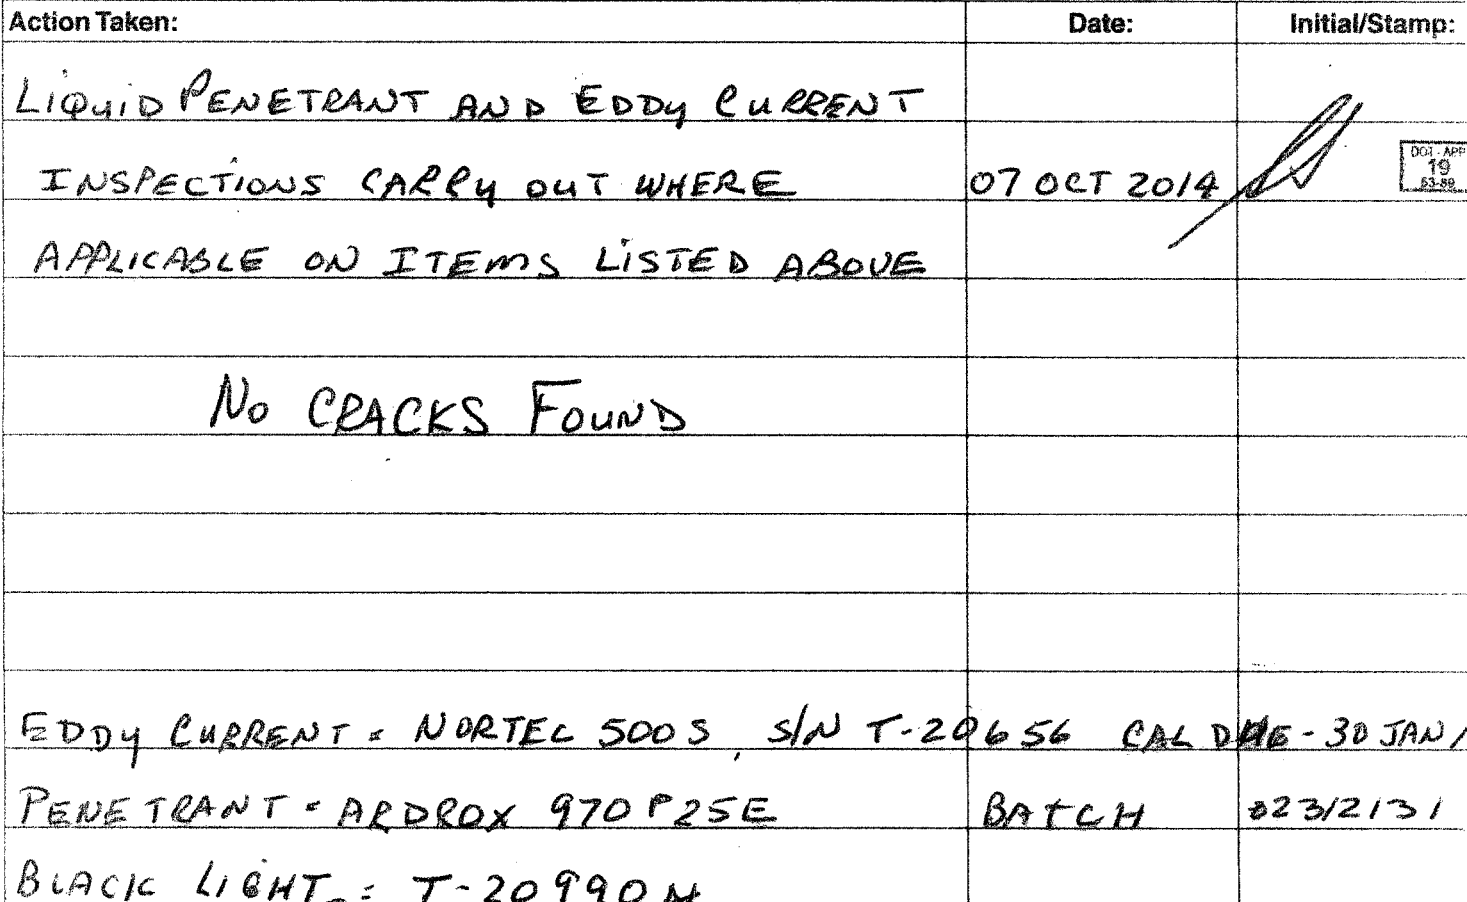 Action Taken: Date: Initial/Stamp:
LIQUID PENETRANT AND EDDY CURRENT
INSPECTIONS CARRY OUT WHERE 07 OCT 2014 DOT-APP 19 53-89
APPLICABLE ON ITEMS LISTED ABOVE
NO CRACKS FOUND
EDDY CURRENT = NORTEC 500S, S/N T-20656 CAL DUE - 30 JAN/
PENETRANT = ARDROX 970P25E BATCH 023/2131
BLACK LIGHT = T-20990